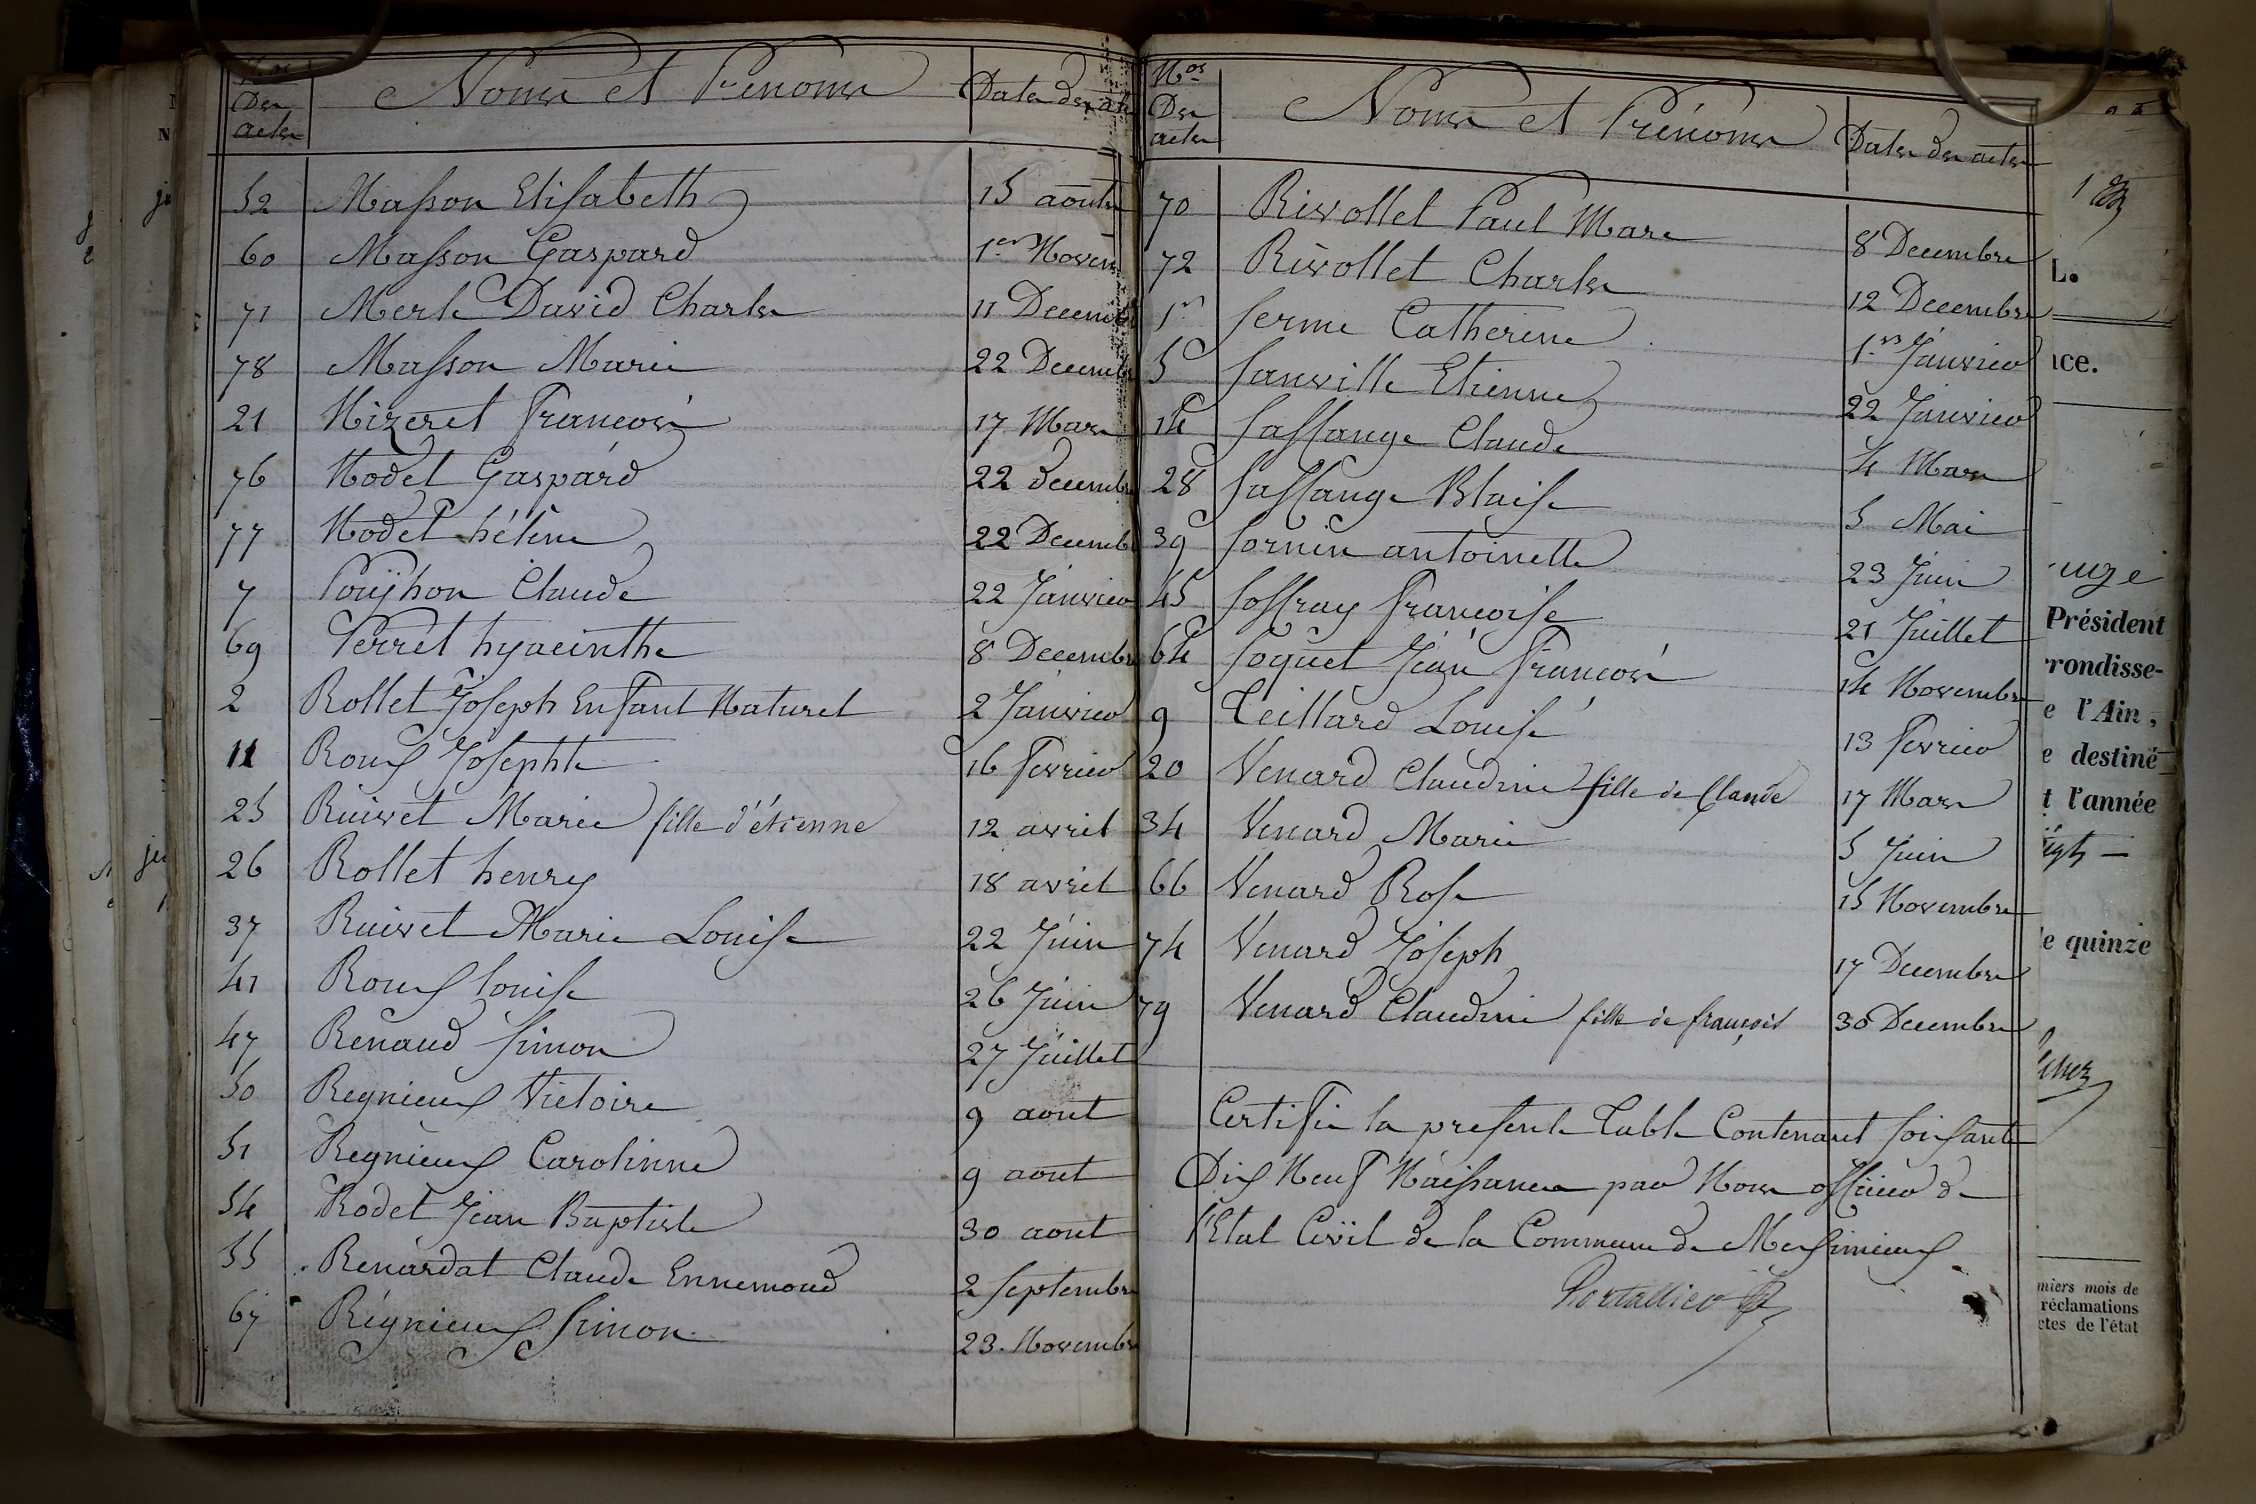 Nos
Des
actes
Noms et Prenoms
Dates des
52 Masson Elisabeth 15 aoust
60 Masson Gaspard 1er Novem
71 Merle David Charles 11 Decemb
78 Masson Marie 22 Decemb
21 Nizeret Francois 17 Mars
76 Nodet Gaspard 22 decembr
77 Nodet hélène 22 Decemb
7 Pouÿhon Claude 22 Janvier
69 Perret hyacinthe 8 Decembr
2 Rollet Joseph Enfant Naturel 2 Janvier
11 Roux Josephte 16 fevrier
25 Ruivet Marie fille d'étienne 12 avril
26 Rollet henry 18 avril
37 Ruivet Marie Louise 22 Juin
41 Roux louise 26 Juin
47 Renaud Simon 27 Juillet
50 Regnieux Victoire 9 aout
51 Regnieux Carolinne 9 aout
54 Rodet Jean Baptiste 30 aout
55 Renardat Claude Ennemond 2 Septembre
67 Régnieux Simon 23 Novembr
Nos
Des
actes
Noms et Prénoms
Dates des actes
70 Rivollet Paul Marc 8 Decembre
72 Rivollet Charles 12 Decembre
1er Serme Catherine 1er Janvier
5 Sanville Etienne 22 Janvier
14 Sassange Claude 4 Mars
28 Sassange Blaise 5 Mai
39 Sornin antoinette 23 Juin
45 Soffray francoise 21 Juillet
64 Soquet Jean francois 14 Novembre
9 Teillard Louise 13 fevrier
20 Venard Claudine fille de Claude 17 Mars
34 Venard Marie 5 Juin
66 Venard Rose 15 Novembre
74 Venard Joseph 17 Decembre
79 Venard Claudine fille de françois 30 Decembre
Certifié la presente Table Contenant Soixante
Dix Neuf Naissances par Nous officier de
l'Etat Civil de la Commune de Meximieux
Portallier
L.
ice.
uge
Président
rondisse-
e l'Ain,
e destiné
t l'année
e quinze
miers mois de
réclamations
ctes de l'état